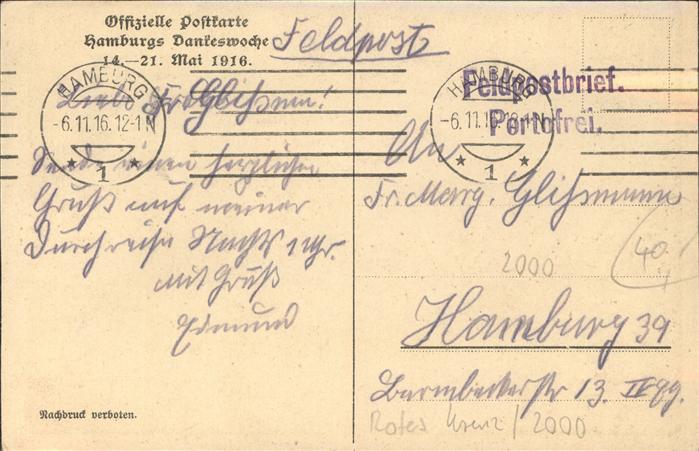 Offizielle Postkarte
Hamburgs Dankeswoche
14.–21. Mai 1916.
Feldpost
HAMBURG
-6.11.16.12-1N
* 1 *
HAMBURG
-6.11.16.12-1N
* 1 *
Feldpostbrief.
Portofrei.
Liebe Fr. Glissmann!
Sende einen herzlichen
Gruß auf meiner
Durchreise Nachts 1 Uhr.
mit Gruß
Edmund
Nachdruck verboten.
An
Fr. Marg. Glissmann
2000
40,
Hamburg 39
Barmbeckerstr 13. II
Rotes Kreuz / 2000